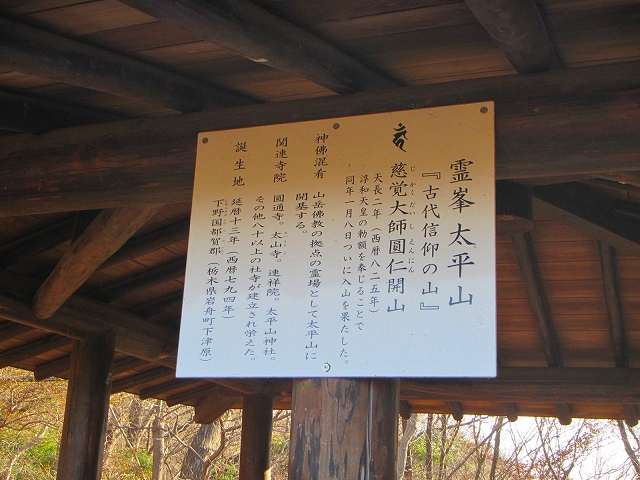 霊峯 太平山
『古代信仰の山』
慈覚大師圓仁開山
じかくだいしえんにん
天長二年(西暦八二五年)
淳和天皇の勅額を奉じることで
同年一月八日ついに入山を果たした。
神佛混肴 山岳佛教の拠点の霊場として太平山に
開基する。
関連寺院 圓通寺。太山寺。連祥院。太平山神社。
その他八十以上の社寺が建立され栄えた。
誕生地 延暦十三年(西暦七九四年)
下野国都賀郡(栃木県岩舟町下津原)